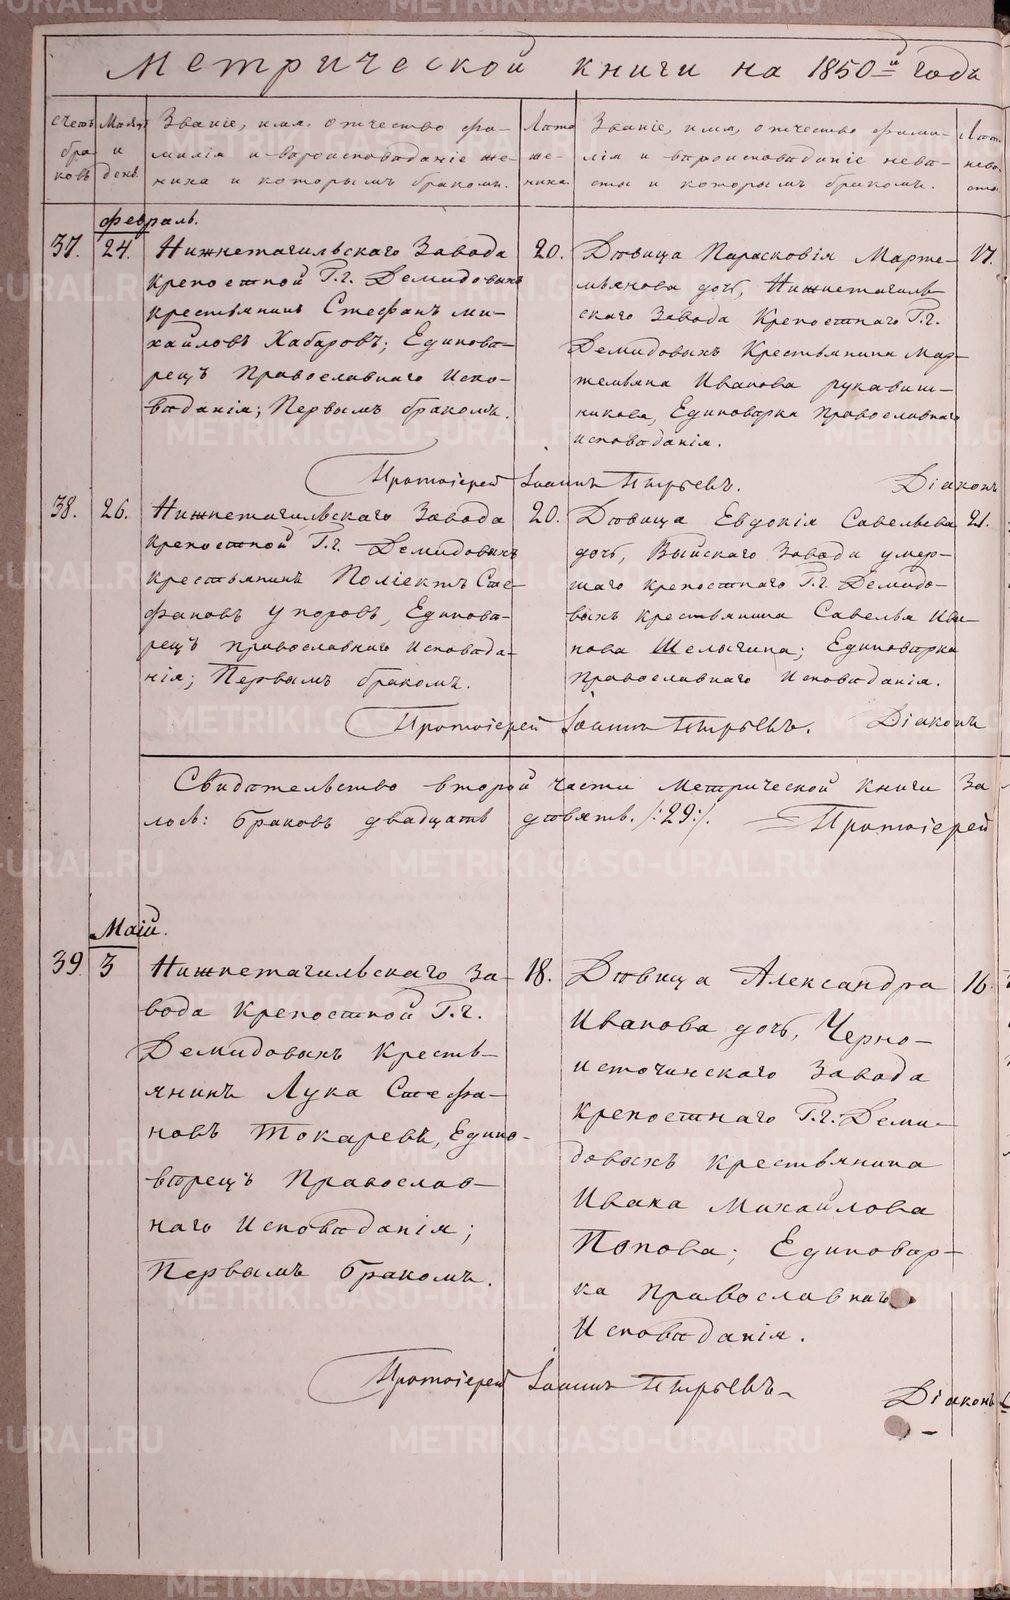 Метрической книги на 1850й годъ
Счетъ браковъ
Месяцъ и день
Званіе, имя, отчество, фа-
милія и вероисповѣданіе же-
ниха и которымъ бракомъ.
Лета
же-
ниха.
Званіе, имя, отчество, фами-
лія и вероисповѣданіе неве-
сты и которымъ бракомъ.
Лета
неве-
сты
Февраль.
37. 24.
Нижнетагильскаго Завода
крепостной Г.г. Демидовыхъ
крестьянинъ Стефанъ Ми-
хайловъ Хабаровъ; Единове-
рецъ Православнаго Испо-
вѣданія; Первымъ бракомъ.
20.
Дѣвица Парасковія Марте-
мьянова дочь, Нижнетагиль-
скаго Завода Крепостнаго Г.г.
Демидовыхъ Крестьянина Мар-
темьяна Иванова рукавиш-
никова, Единоверка православнаго
исповѣданія.
17.
Протоіерей Іоаннъ Пырьевъ. Діаконъ
38. 26.
Нижнетагильскаго Завода
крепостной Г.г. Демидовыхъ
крестьянинъ Поліектъ Сте-
фановъ Упоровъ, Единове-
рецъ православнаго исповѣда-
нія; Первымъ бракомъ.
20.
Дѣвица Евдокія Савельева
дочь, Выйскаго Завода умер-
шаго крепостнаго Г.г. Демидо-
выхъ крестьянина Савелья Ива-
нова Шелыгина; Единоверка
православнаго Исповѣданія.
21.
Протоіерей Іоаннъ Пырьевъ. Діаконъ
Свидѣтельство второй части Метрической Книги За
лось: браковъ двадцать дѣвять. /:29:/. Протоіерей
Маій.
39 3
Нижнетагильскаго За-
вода крепостной Г.г.
Демидовыхъ Кресть-
янинъ Лука Стефа-
новъ Токаревъ, Едино-
вѣрецъ Православ-
наго Исповѣданія;
Первымъ бракомъ.
18.
Дѣвица Александра
Иванова дочь, Черно-
источинскаго Завода
крепостнаго Г.г. Деми-
довыхъ крестьянина
Ивана Михайлова
Попова; Единовер-
ка православнаго
Исповѣданія.
16.
Протоіерей Іоаннъ Пырьевъ Діаконъ
METRIKI.GASO-URAL.RU